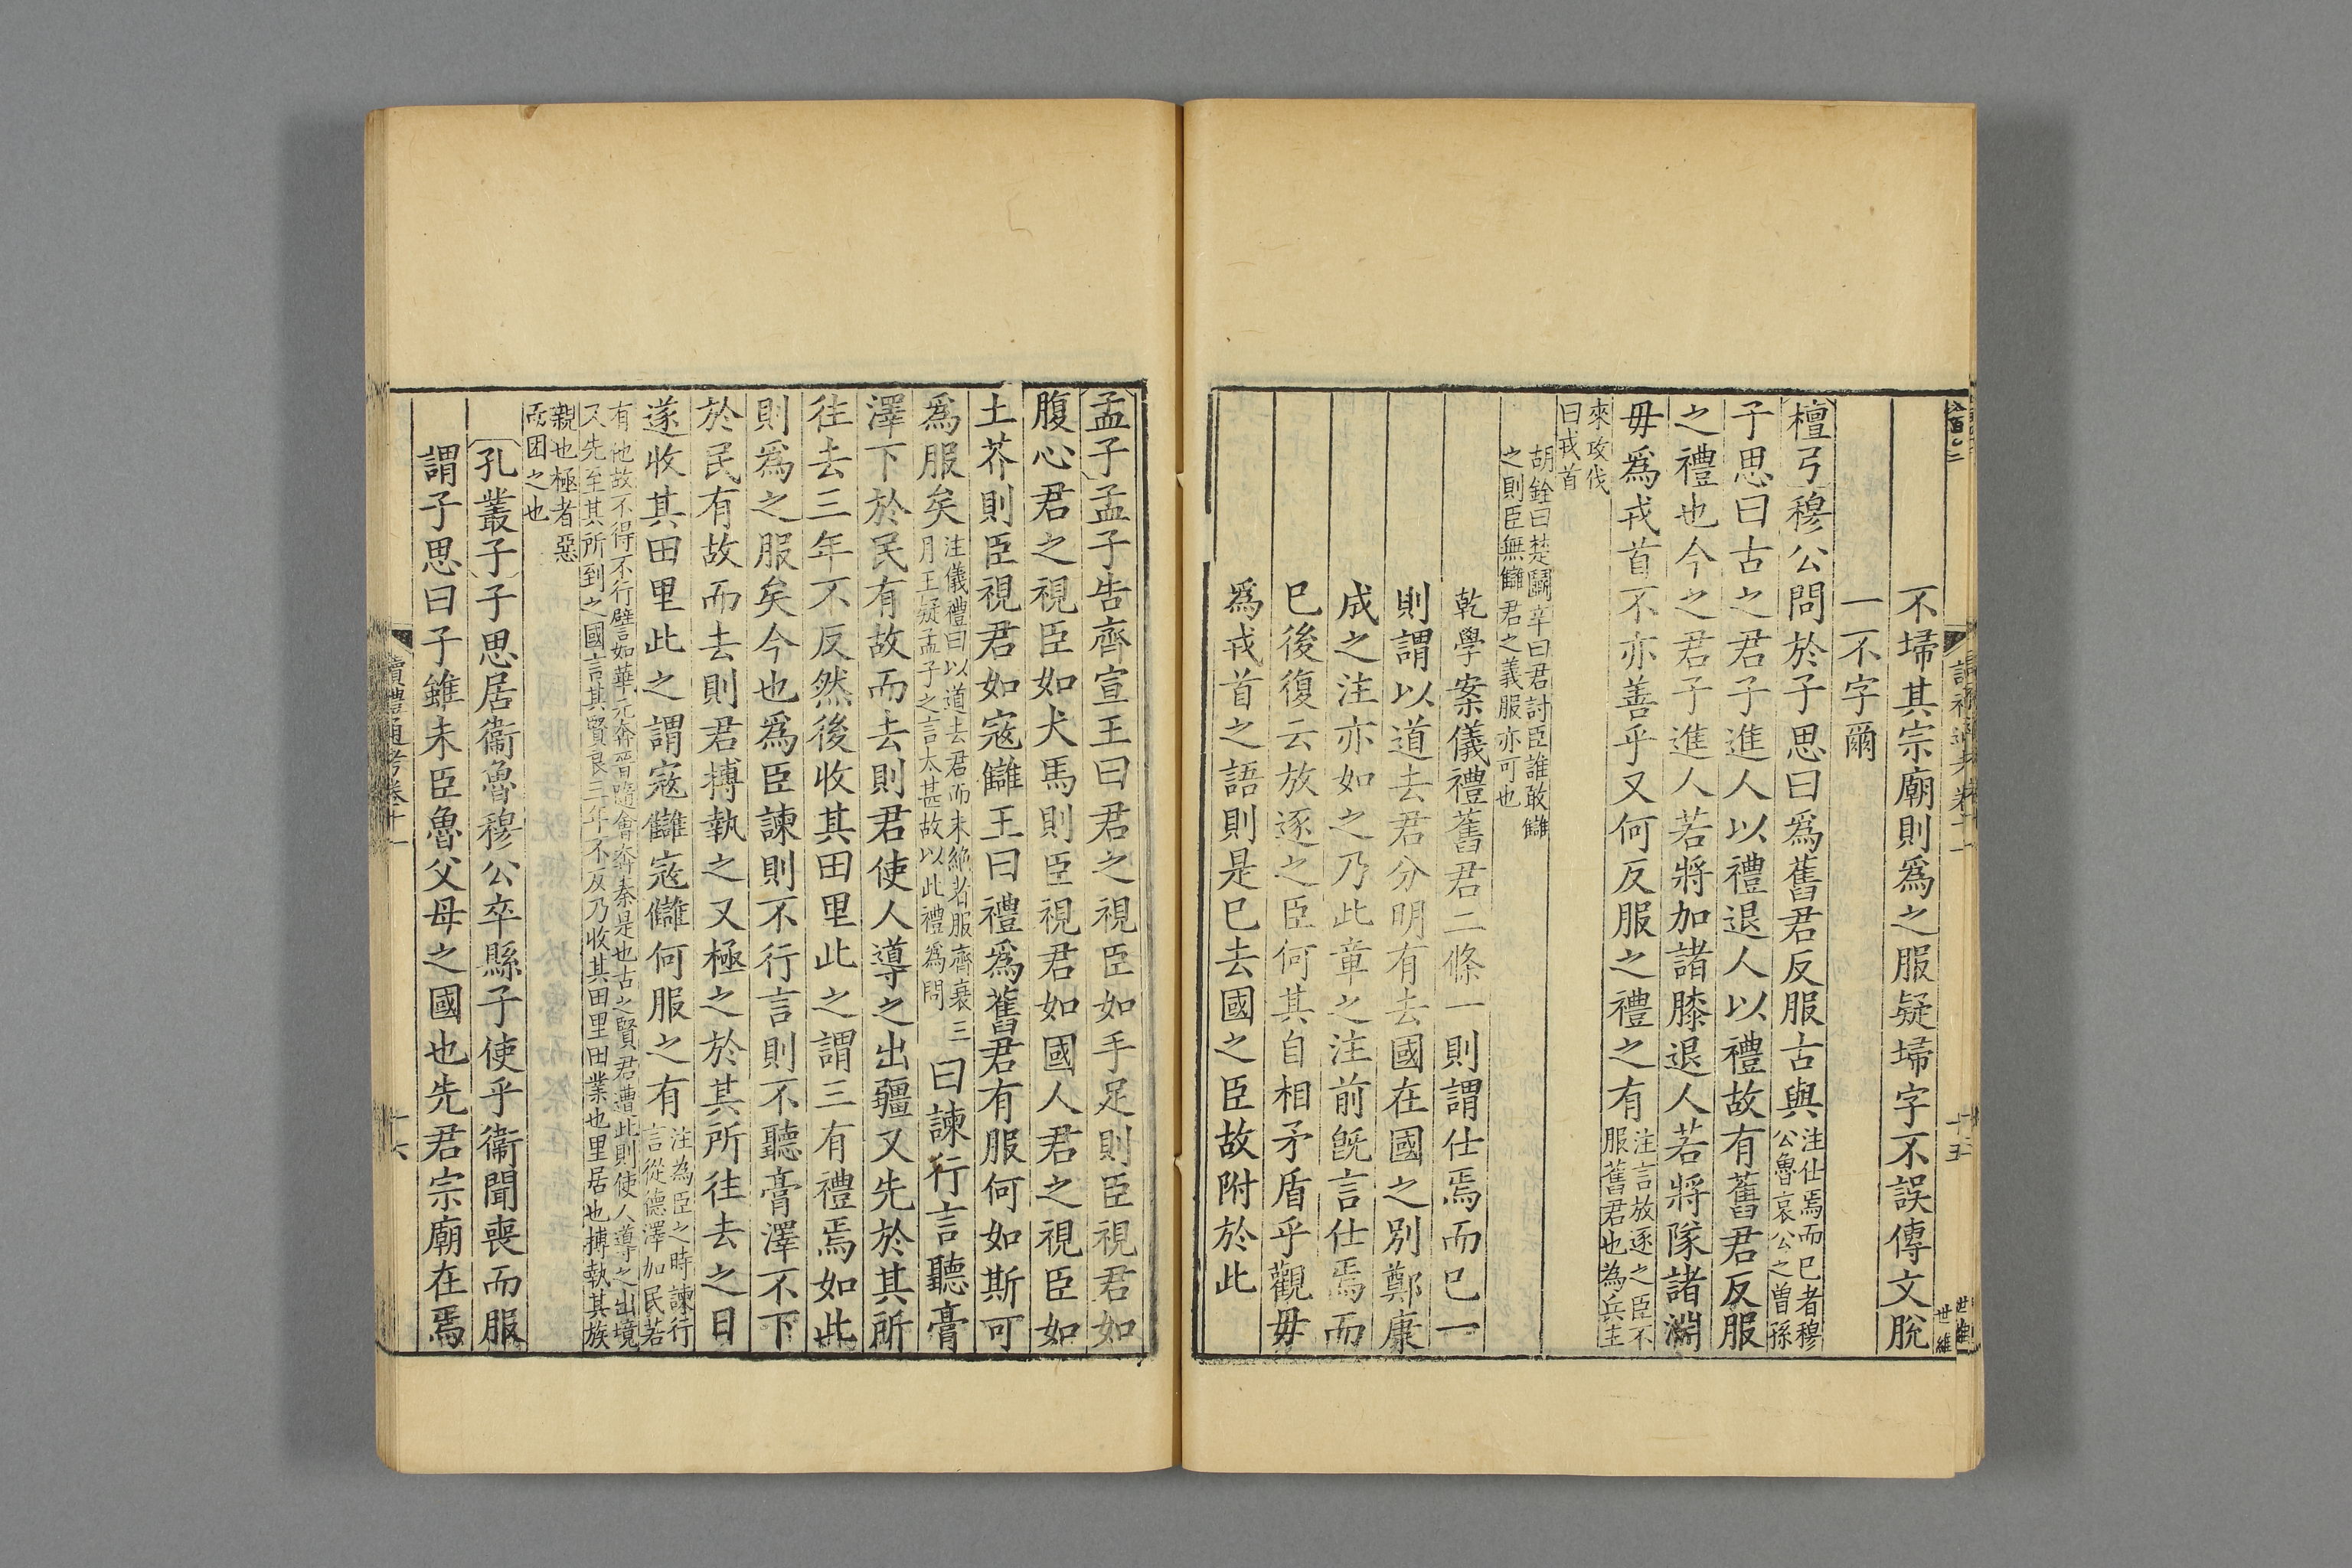 不埽其宗廟則爲之服疑埽字不誤傳文脫
一不字爾
檀弓穆公問於子思曰爲舊君反服古與注仕焉而已者穆
公魯哀公之曾孫
子思曰古之君子進人以禮退人以禮故有舊君反服
之禮也今之君子進人若將加諸膝退人若將隊諸淵
毋爲戎首不亦善乎又何反服之禮之有注言放逐之臣不
服舊君也為兵主
來攻伐
曰戎首
胡銓曰楚鬬辛曰君討臣誰敢讎
之則臣無讎君之義服亦可也
乾學案儀禮舊君二條一則謂仕焉而已一
則謂以道去君分明有去國在國之別鄭康
成之注亦如之乃此章之注前旣言仕焉而
已後復云放逐之臣何其自相矛盾乎觀毋
爲戎首之語則是已去國之臣故附於此
十五
世維
孟子孟子告齊宣王曰君之視臣如手足則臣視君如
腹心君之視臣如犬馬則臣視君如國人君之視臣如
土芥則臣視君如寇讎王曰禮爲舊君有服何如斯可
爲服矣注儀禮曰以道去君而未絶者服齊衰三
月王疑孟子之言太甚故以此禮為問
曰諫行言聽膏
澤下於民有故而去則君使人導之出疆又先於其所
往去三年不反然後收其田里此之謂三有禮焉如此
則爲之服矣今也爲臣諫則不行言則不聽膏澤不下
於民有故而去則君搏執之又極之於其所往去之日
遂收其田里此之謂寇讎寇讎何服之有注為臣之時諫行
言從德澤加民若
有他故不得不行譬如華元奔晉隨會奔秦是也古之賢君遭此則使人導之出境
又先至其所到之國言其賢良三年不反乃收其田里田業也里居也搏執其族
親也極者惡
而困之也
孔叢子子思居衞魯穆公卒縣子使乎衞聞喪而服
謂子思曰子雖未臣魯父母之國也先君宗廟在焉
讀禮通考卷十一
十六